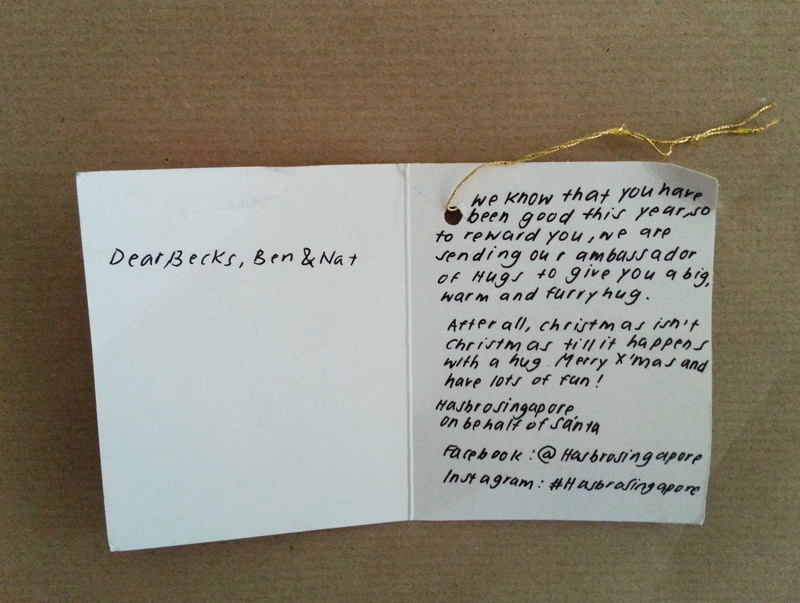 Dear Becks, Ben & Nat
We know that you have
been good this year, so
to reward you, we are
sending our ambassador
of Hugs to give you a big,
warm and furry hug.
After all, christmas isn't
christmas till it happens
with a hug. Merry X'mas and
have lots of fun!
Hasbrosingapore,
on behalf of Santa
Facebook : @Hasbrosingapore
Instagram : #Hasbrosingapore